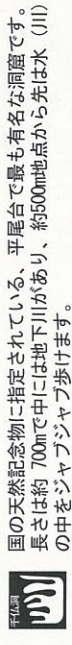 千仏洞
国の天然記念物に指定されている、平尾台で最も有名な洞窟です。
長さは約 700mで中には地下川があり、約500m地点から先は水（川）
の中をジャブジャブ歩けます。